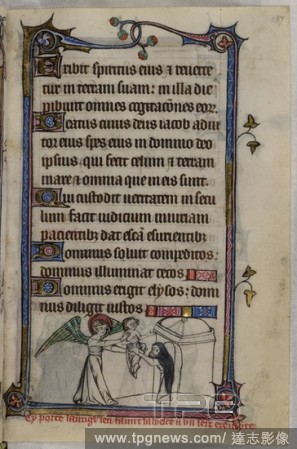 187
Exibit spiritus eius & reverte
tur in terram suam: in illa die
peribunt omnes cogitaciones eorum.
eatus cuius deus iacob adiu
tor eius spes eius in domino deo
ipsius: qui fecit celum & terram
mare & omnia que in eis sunt.
ui custodit ueritatem in secu
lum facit iudicium iniuriam
pacientibus dat escam esurientibus
ominus soluit compeditos:
dominus illuminat cecos
ominus erigit elysos: domi
nus diligit iustos
TPG
www.tpgnews.com/達志影像